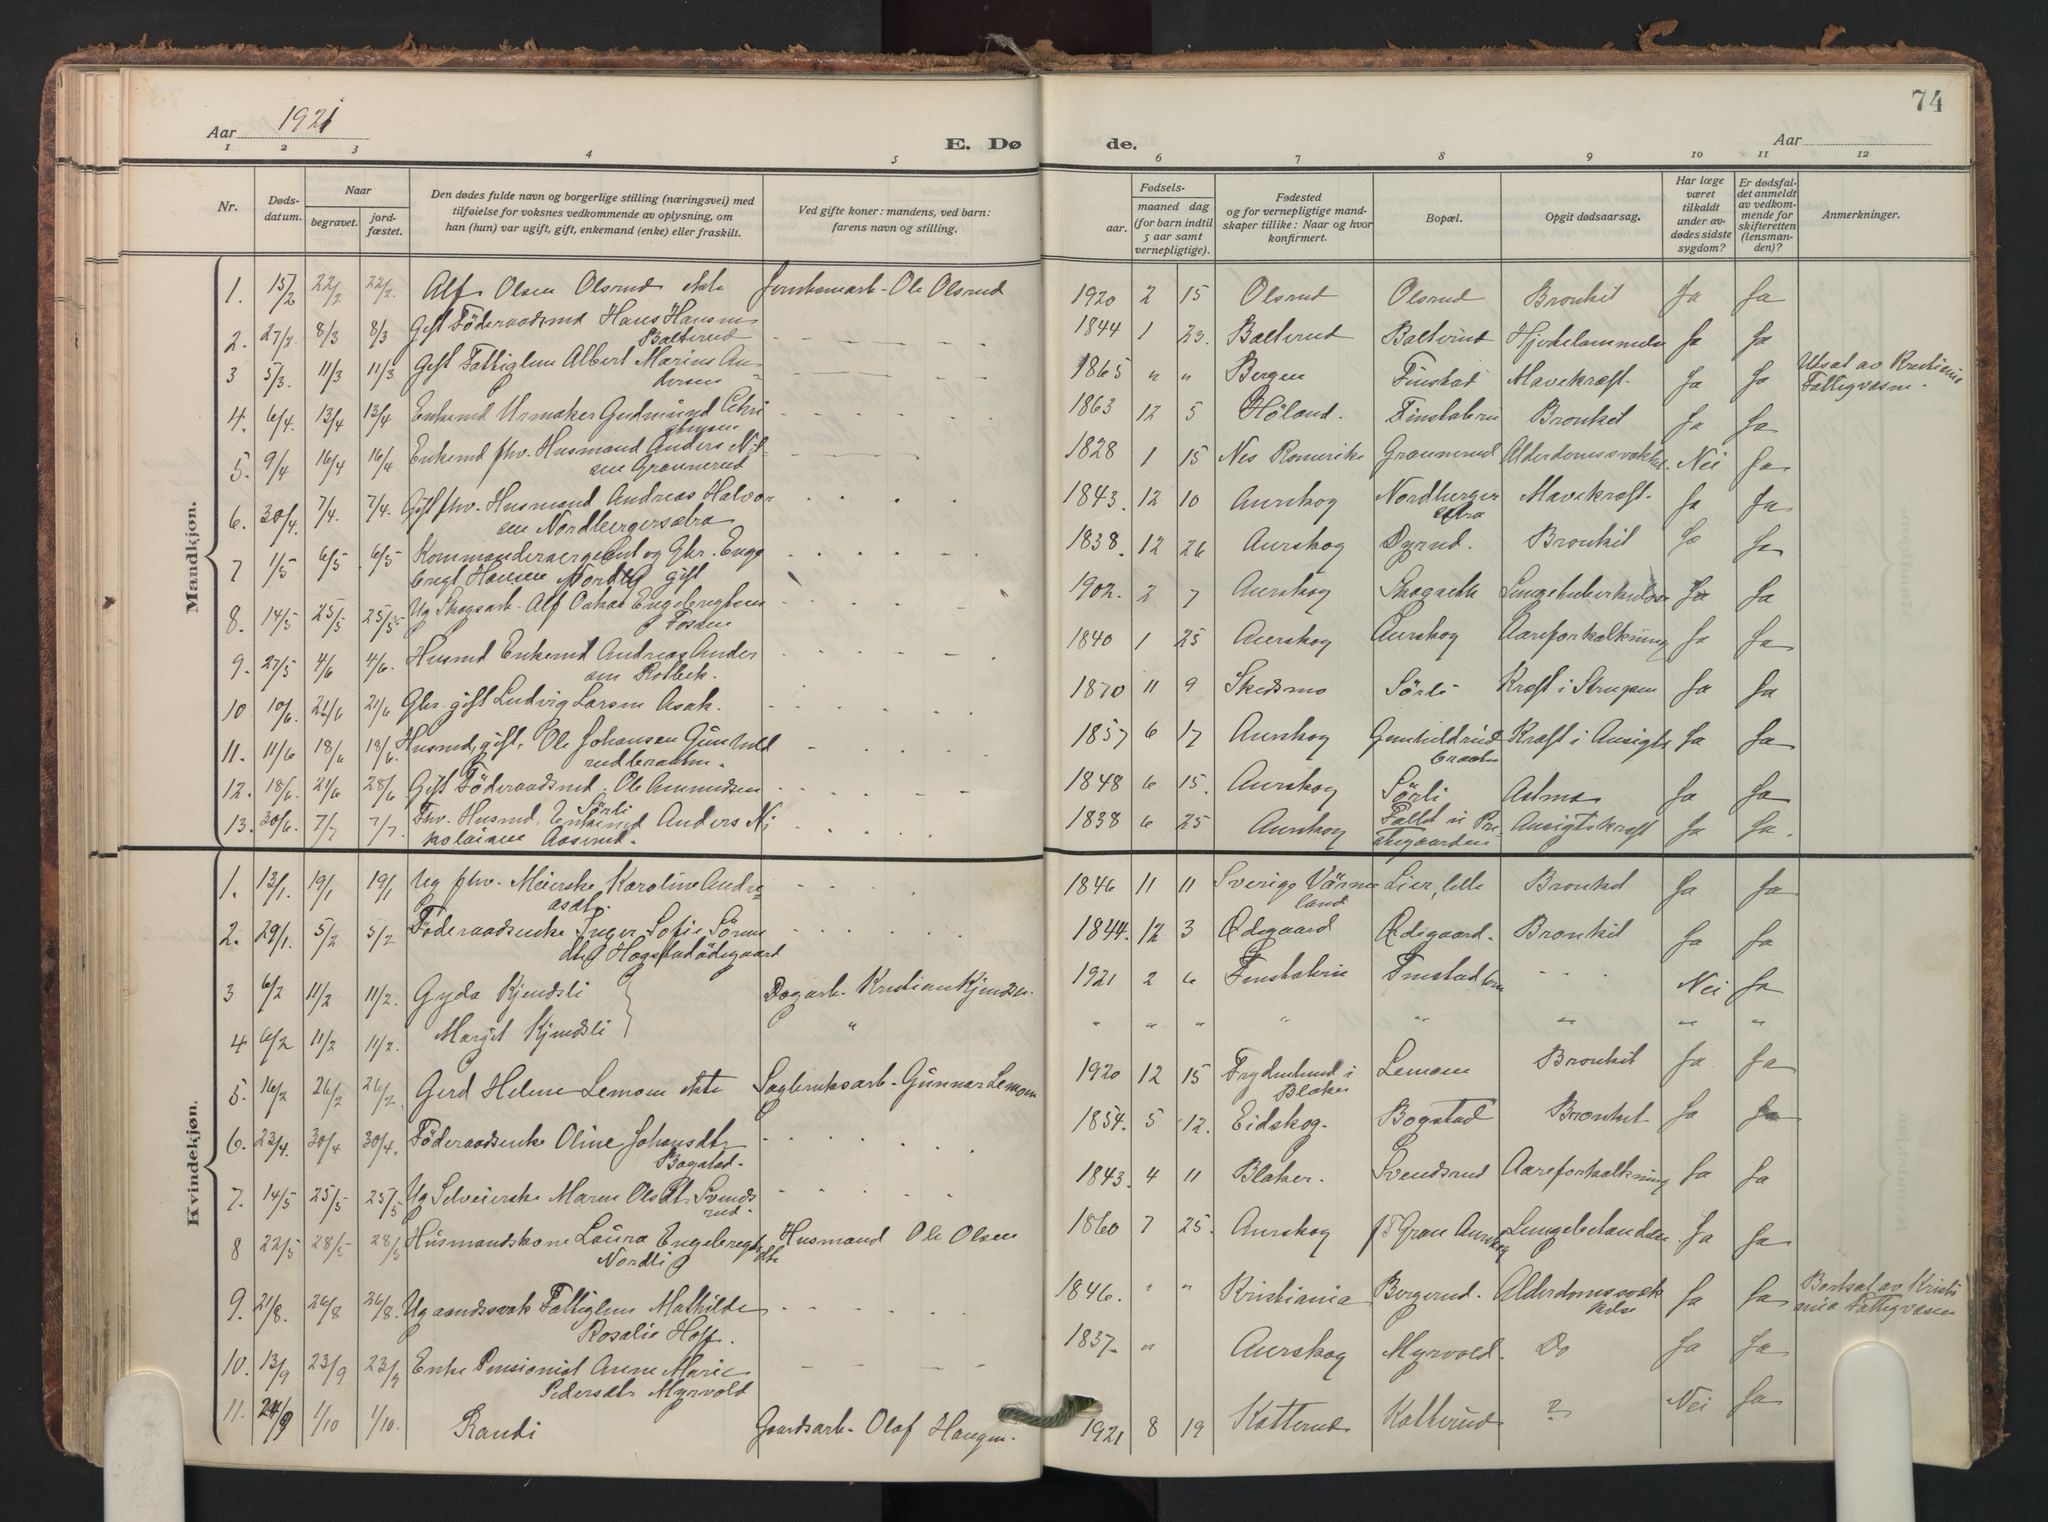 74
Aar 1921
E. Dø
de.
Aar
1 2 3 4 5 6 7 8 9 10 11 12
Nr.
Døds-
datum.
Naar
begravet.
jord-
fæstet.
Den dødes fulde navn og borgerlige stilling (næringsvei) med
tilføielse for voksnes vedkommende av oplysning, om
han (hun) var ugift, gift, enkemand (enke) eller fraskilt.
Ved gifte koner: mandens, ved barn:
farens navn og stilling.
Fødsels-
aar.
maaned dag
(for barn indtil
5 aar samt
vernepligtige).
Fødested
og for vernepligtige mand-
skaper tillike: Naar og hvor
konfirmert.
Bopæl.
Opgit dødsaarsag.
Har læge
været
tilkaldt
under av-
dødes sidste
sygdom?
Er dødsfal-
det anmeldt
av vedkom-
mende for
skifteretten
(lensman-
den)?
Anmerkninger.
Mandkjøn.
1. 15/2 22/2 22/2. Alf Olsen Olsrud ekte Jernbanearb. Ole Olsrud 1920 2 15 Olsrud Olsrud Bronkit Ja Ja
2. 27/2. 8/3 8/3 Gift Föderaadsmd Hans Hansen
Balterud 1844 1 23. Balterud Balterud Ja Ja
3 5/3. 11/3 11/3 Gift Fattiglem Albert Marius An-
dersen 1865 " " Bergen Finstad Mavekræft. Ja Ja Utsat av Kristiania
Fattigvæsen.
4. 6/4. 13/4 13/4 Enkemd Urmaker Gudmund Chri
stensen 1863 12 5 Höland. Finstaberu Bronkit Ja Ja
5. 9/4 16/4 16/4 Enkemd fhv. Husmand Anders Nil-
sen Grannerud 1828 1 15 Nes Romerike Grannerud Alderdomssvakhet Nei Ja
6. 30/4. 7/4. 7/4. Gift fhv. Husmand Andreas Halvor
sen Nordbergersætra 1843. 12 10 Aurskog Nordberger
sætra Mavekræft. Ja Ja
7 1/5 6/5 6/5 Kommandersergeant og Gbr. Enge
bregt Hansen Nordli gift 1838. 12 26 Aurskog Dyrud. Bronkit Ja Ja
8. 14/5 25/5 25/5 Ug Skogsarb. Alf Oskar Engebregtsen
Fossen 1902. 2 7 Aurskog Lungetuberkulose Ja Ja
9. 27/5 4/6 4/6. Husmd Enkemd Andreas Ander
sen Rotbek. 1840 1 25 Aurskog Aurskog Aareforkalkning Ja Ja
10 10/6. 21/6 21/6 Gbr. gift Ludvig Larsen Asak. 1870 11 9 Skedsmo Sörli Kræft i Strupen Ja Ja
11. 11/6 18/6 18/6. Husmd, gift. Ole Johansen Gunhild
rudbraaten. 1857 6 17 Aurskog Gunhildrud
braaten Kræft i Ansigte Ja Ja
12. 18/6. 21/6 28/6 Gift Föderaadsmd. Ole Amundsen
Sörli 1848 6 15. Aurskog Sörli Astma Ja Ja
13. 30/6. 7/7 7/7. Fhv. Husmd, Enkemd Anders Ni
kolaisen Aaserud. 1838 6 25 Aurskog Pallet u Pre
stegaarden Ansigtskræft Ja Ja.
Kvindekjøn.
1. 13/1. 19/1 19/1 Ug fhv. Meierske Karoline Andre
asdt. 1846 11 11 Sverige Värme
land Lier, lille Bronkit Ja Ja
2. 29/1. 5/2 5/2 Föderaadsenke Inger Sofie Sören
dtr Hogstadödegaard 1844. 12 3 Ödegaard Ödegaard. Bronkit Ja Ja
3 6/2 11/2 11/2. Gyda Kjendsli Dagarb. Kristian Kjendsli. 1921 2 6 Finstaberu Finstadberu - - - Nei Ja
4 6/2 11/2 11/2. Margit Kjendsli " " " " " " " " "
5. 16/2 26/2 26/2. Gerd Helene Lemoen ekte Sagbruksarb. Gunnar Lemoen 1920 12 15 Frydenlund i
Blaker Lemoen Bronkit Ja Ja
6. 23/4. 30/4 30/4. Föderaadsenke Oline Johansdtr
Bogstad. 1854. 5 12. Eidskog. Bogstad Bronkit Ja Ja
7. 14/5 25/5 25/5 Ug Selveierske Maren Olsdtr Svends
rud. 1843. 4 11 Blaker. Svendsrud Aareforkalkning Ja Ja
8 22/5 28/5 28/5 Husmandskone Laura Engebregtsdtr
Nordli Husmand Ole Olsen 1860 7 25. Aurskog Gran Aurskog Ja Ja
9. 21/8. 26/8 26/8. Ug aandssvak Fattiglem Mathilde
Rosalie Hoff. 1846. " " Kristiania Bergerud. Alderdomssvak
kelse Ja Ja Bortsat av Kristi
ania Fattigvæsen
10. 13/9 23/9 23/9 Enke Pensionist Anne Marie
Pedersdtr Myrvold 1837. " Aurskog Myrvold. Do Ja Ja
11. 24/9 1/10 1/10. Randi Gaardsarb. Olaf Haugen. 1921 8 19 Katterud Katterud ? Nei Ja